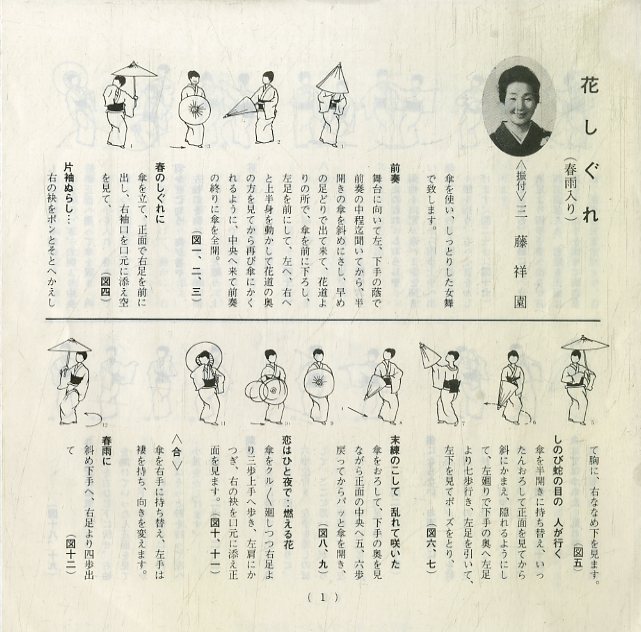 花しぐれ
(春雨入り)
〈振付〉三藤祥園
傘を使い、しっとりした女舞
で致します。
前奏
舞台に向いて左、下手の蔭で
前奏の中程迄聞いてから、半
開きの傘を斜めにさし、早め
の足どりで出て来て、花道よ
りの所で、傘を前に下ろし、
左足を前にして、左へ、右へ
と上半身を動かして花道の奥
の方を見てから再び傘にかく
れるように、中央へ来て前奏
の終りに傘を全開。
(図一、二、三)
春のしぐれに
傘を立て、正面で右足を前に
出し、右袖口を口元に添え空
を見て、(図四)
片袖ぬらし…
右の袂をポンとそとへかえし
て胸に、右ななめ下を見ます。
(図五)
しのび蛇の目の 人が行く
傘を半開きに持ち替え、いっ
たんおろして正面を見てから
斜にかまえ、隠れるようにし
て、左廻りで下手の奥へ左足
より七歩行き、左足を引いて、
左下を見てポーズをとり、
(図六、七)
末練のこして 乱れて咲いた
傘をおろして、下手の奥を見
ながら正面の中央へ五、六歩
戻ってからパッと傘を開き、
(図八、九)
恋はひと夜で…燃える花
傘をクル〱廻しつつ右足よ
り三歩上手へ歩き、左肩にか
つぎ、右の袂を口元に添え正
面を見ます。(図十、十一)
〈合〉
傘を右手に持ち替え、左手は
褄を持ち、向きを変えます。
春雨に
斜め下手へ、右足より四歩出
て(図十二)
1
2
3
4
5
6
7
8
9
10
11
12
(1)